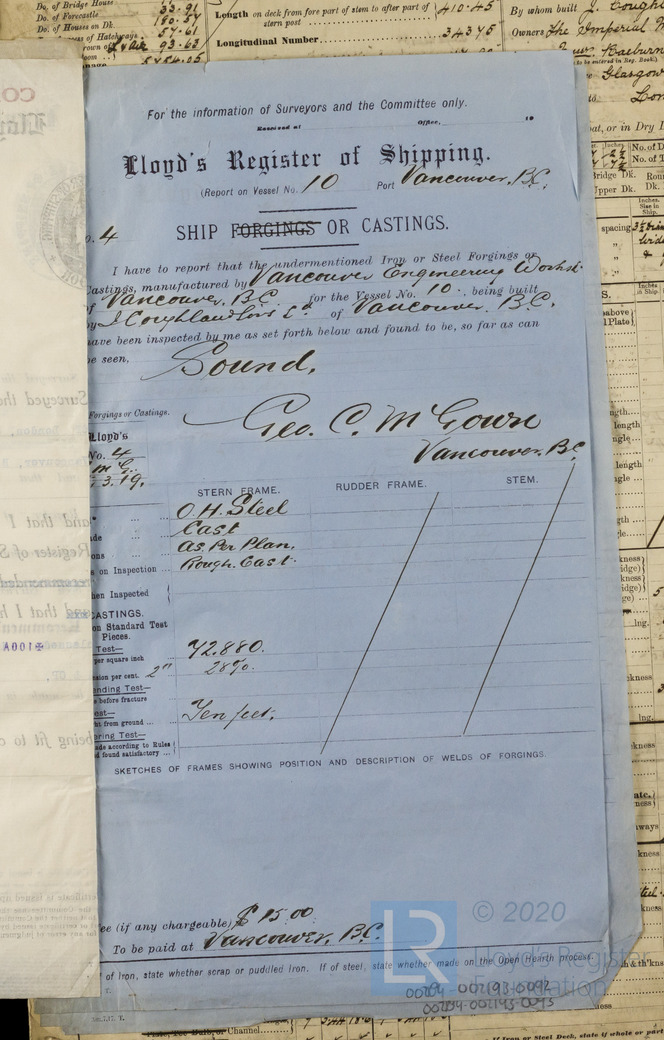 Do. of Bridge House 33.91
Do. of Forecastle 180.57
Do. of Houses on Dk. 57.61
of Hatchways 93.63
5454.05
Length on deck from fore part of stem to after part of stern post 410.45
Longitudinal Number 34375
By whom built J. Coughlan
Owners The Imperial
Glasgow
For the information of Surveyors and the Committee only.
Received at Office, 19
Lloyd's Register of Shipping.
(Report on Vessel No. 10 Port Vancouver, B.C.
o. 4
SHIP FORGINGS OR CASTINGS.
I have to report that the undermentioned Iron or Steel Forgings or
Castings, manufactured by Vancouver Engineering Works
of Vancouver, B.C. for the Vessel No. 10, being built
by J Coughlan & Sons Ltd of Vancouver, B.C.
have been inspected by me as set forth below and found to be, so far as can
be seen,
Sound.
Forgings or Castings.
Lloyd's
No. 4
3.19.
Geo. C. McGown
Vancouver, BC
STERN FRAME. RUDDER FRAME. STEM.
O.H. Steel
Cast
As Per Plan.
s on Inspection ... Rough Cast.
hen Inspected
CASTINGS.
on Standard Test
Pieces.
Test—
per square inch 72.880.
sion per cent. 2" 28%.
ending Test—
s before fracture
st—
ht from ground ... Ten feet.
ering Test—
ade according to Rules
d found satisfactory ...
SKETCHES OF FRAMES SHOWING POSITION AND DESCRIPTION OF WELDS OF FORGINGS.
ee (if any chargeable) $ 15.00
To be paid at Vancouver, B.C.
of Iron, state whether scrap or puddled Iron. If of steel, state whether made on the Open Hearth process.
LR
© 2020
Lloyd's Register
Foundation
002194-002193-0092
002194-002193-0093
If Iron or Steel Deck, state if whole or part